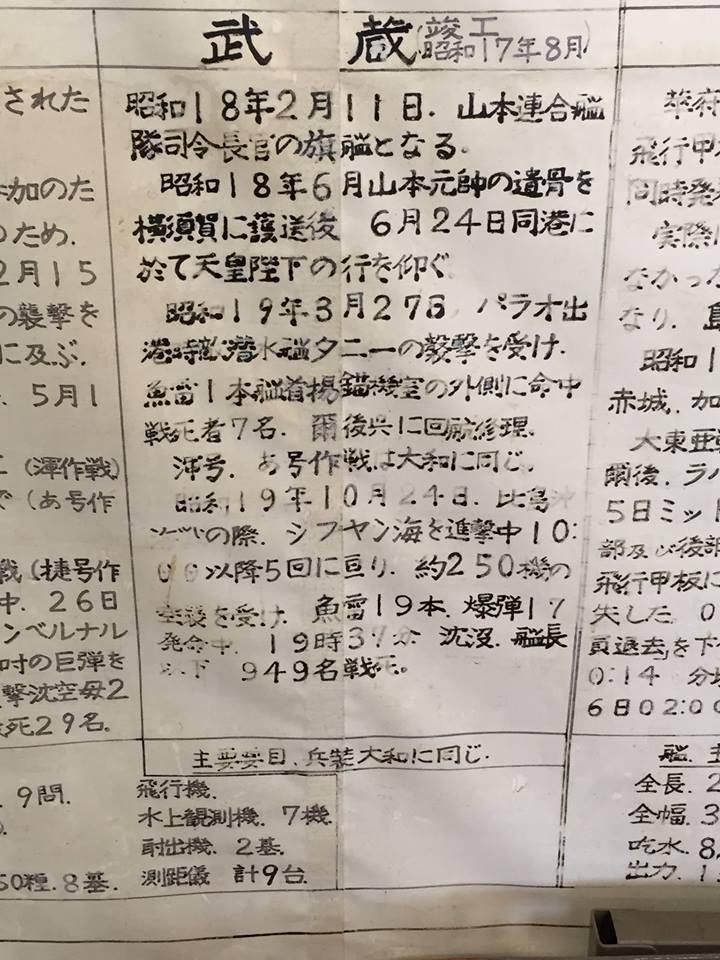 武蔵(竣工
昭和17年8月)
昭和18年2月11日.山本連合艦
隊司令長官の旗艦となる.
昭和18年6月山本元帥の遺骨を
横須賀に護送後 6月24日同港に
於て天皇陛下の行を仰ぐ
昭和19年3月27日.パラオ出
港時敵潜水艦タニーの襲撃を受け.
魚雷1本艦首楊錨機室の外側に命中
戦死者7名.爾後呉に回航修理.
渾号.あ号作戦は大和に同じ.
昭和19年10月24日.比島沖
の際.シブヤン海を進撃中10:
00以降5回に亘り.約250機の
空襲を受け.魚雷19本.爆弾17
発命中.19時37分 沈没.艦長
以下 949名戦死。
主要要目.兵装大和に同じ.
された
加のた
のため.
2月15
の襲撃を
に及ぶ.
5月1
(渾作戦)
(あ号作
戦(捷号作
中.26日
ンベルナル
吋の巨弾を
撃沈空母2
死29名.
9門.
50糎.8基.
飛行機.
水上観測機.7機.
射出機.2基.
測距儀 計9台.
飛行甲板
同時発
実際
なかった
なり.
昭和1
赤城.加
大東亜戦
爾後.ラバ
5日ミッド
部及び後部
飛行甲板に
失した.0
員退去」を下
0:14 分
6日02:00
艦.主
全長.2
全幅.3
吃水.8.
出力.1